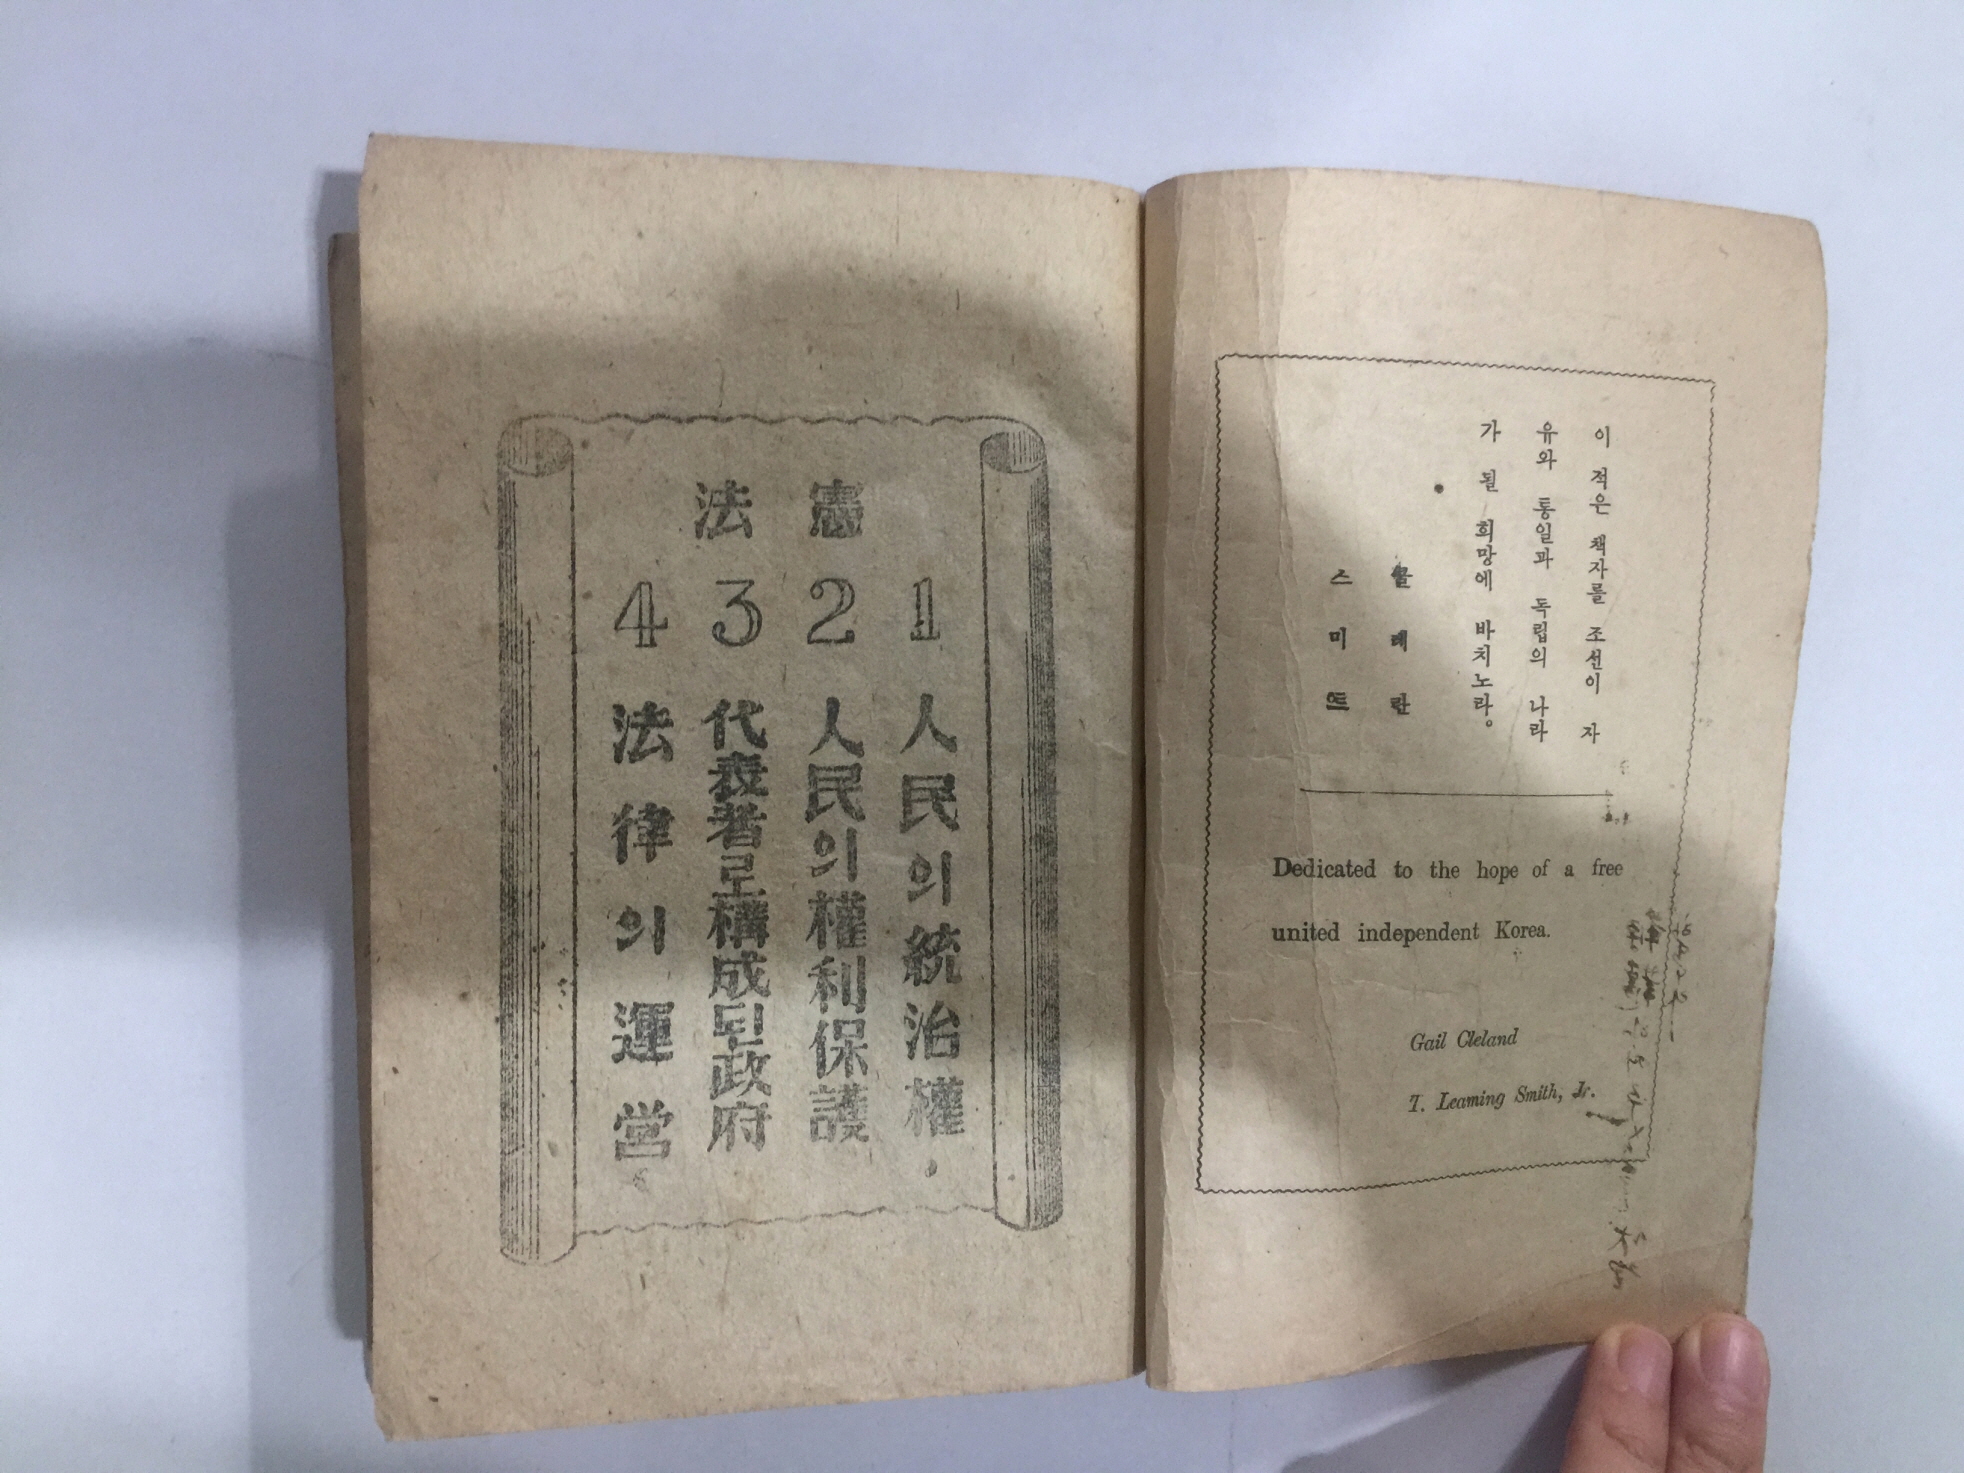 이 적은 책자를 조선이 자
유와 통일과 독립의 나라
가 될 희망에 바치노라。
클레란
스미트
Dedicated to the hope of a free
united independent Korea.
Gail Cleland
T. Leaming Smith, Jr.
憲法
1 人民의統治權
2 人民의權利保護
3 代表者로構成된政府
4 法律의運営